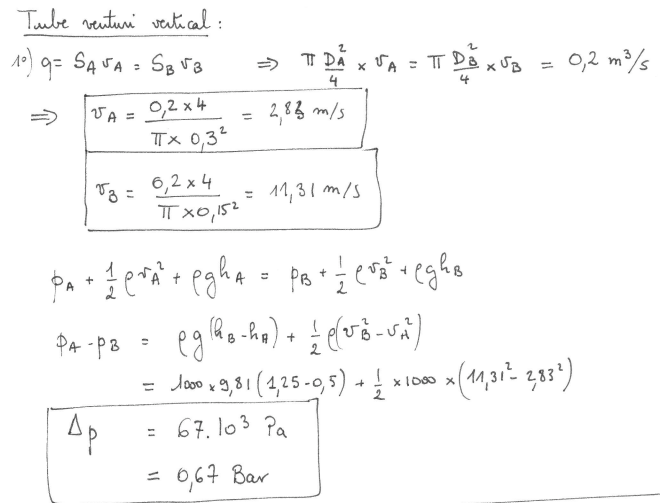 Tube venturi vertical :
1°) q = S_A v_A = S_B v_B ⇒ π D_A²/4 × v_A = π D_B²/4 × v_B = 0,2 m³/s
⇒ v_A = (0,2 × 4)/(π × 0,3²) = 2,83 m/s
v_B = (0,2 × 4)/(π × 0,15²) = 11,31 m/s
p_A + 1/2 ρ v_A² + ρ g h_A = p_B + 1/2 ρ v_B² + ρ g h_B
p_A - p_B = ρ g (h_B - h_A) + 1/2 ρ (v_B² - v_A²)
= 1000 × 9,81 (1,25 - 0,5) + 1/2 × 1000 × (11,31² - 2,83²)
Δp = 67.10³ Pa
= 0,67 Bar